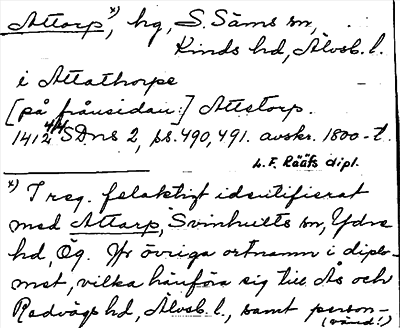 Attarp x), hg, S. Säms sn,
Kinds hd, Älvsb. l.
i Attathorpe
[på frånsidan:] Attstorp.
1412 4/4 SDns 2, ss. 490, 491. avskr. 1800-t.
L. F. Rääfs dipl.
x) I reg. felaktigt identifierat
med Attarp, Svinhults sn, Ydre
hd, Ög. Jfr övriga ortnamn i diplo-
met, vilka hänföra sig till Ås och
Redvägs hd, Älvsb. l., samt person-
(vänd!)